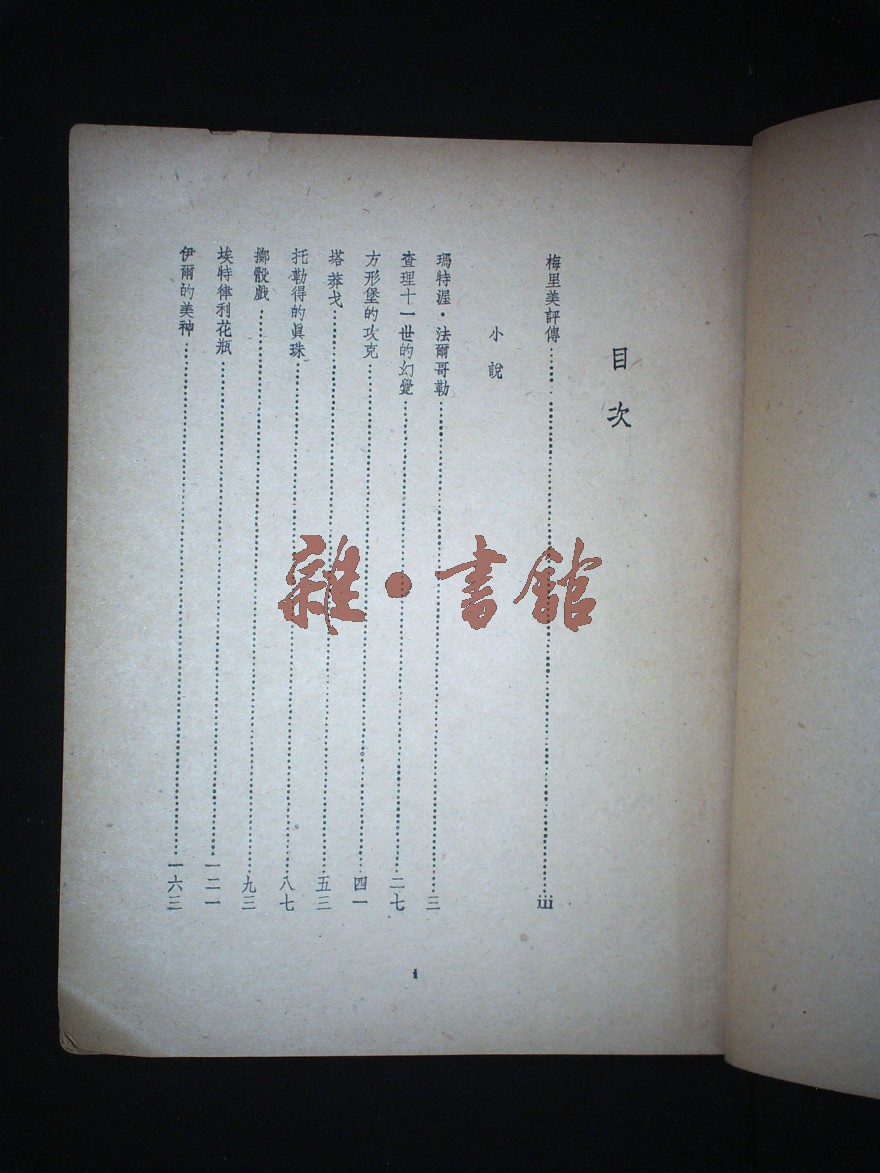 目次
梅里美評傳……iii
小說
瑪特渥·法爾哥勒……三
查理十一世的幻覺……二七
方形堡的攻克……四一
塔莽戈……五三
托勒得的眞珠……八七
擲骰戲……九三
埃特律利花瓶……一二一
伊爾的美神……一六三
1
雜·書館